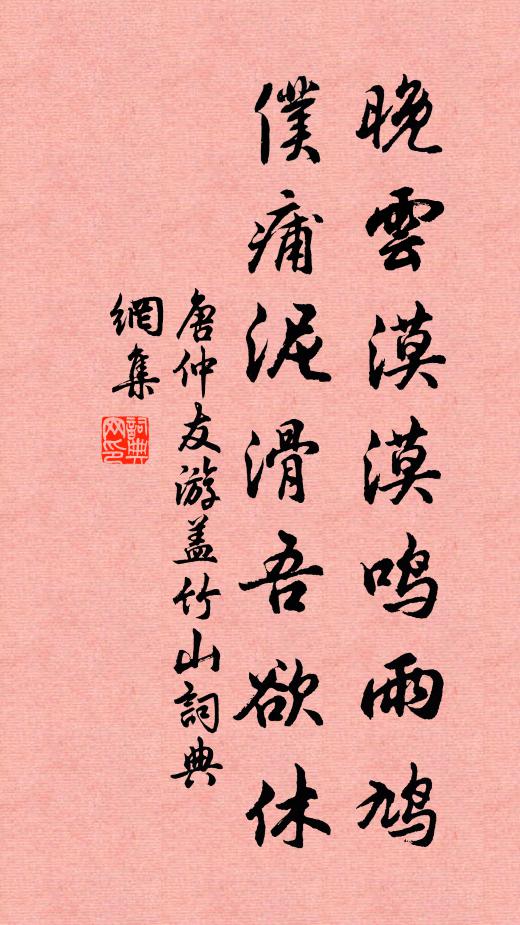 晚雲漠漠鸣雨鸠
僕痡泥滑吾欲休
唐仲友游盖竹山詞典
網集
詞典网印